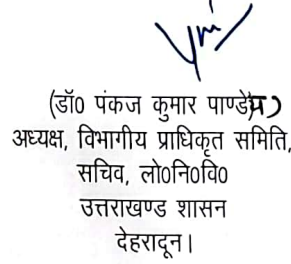 (डॉ0 पंकज कुमार पाण्डेय)
अध्यक्ष, विभागीय प्राधिकृत समिति,
सचिव, लो0नि0वि0
उत्तराखण्ड शासन
देहरादून।